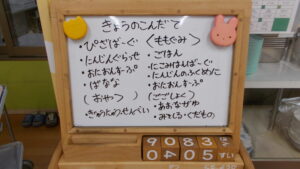 きょうのこんだて
・ぴざばーぐ
・にんじんぐらっせ
・おたおんすーぷ
・ばなな
(おやつ)
・ぎゅうにゅう・せんべい
〈ももぐみ〉
・ごはん
・にこみはんばーぐ
・にんじんのふくめに
・おたおんすーぷ
(ごごしょく)
・あおながゆ
・みそしる・くだもの
9083
0405すい